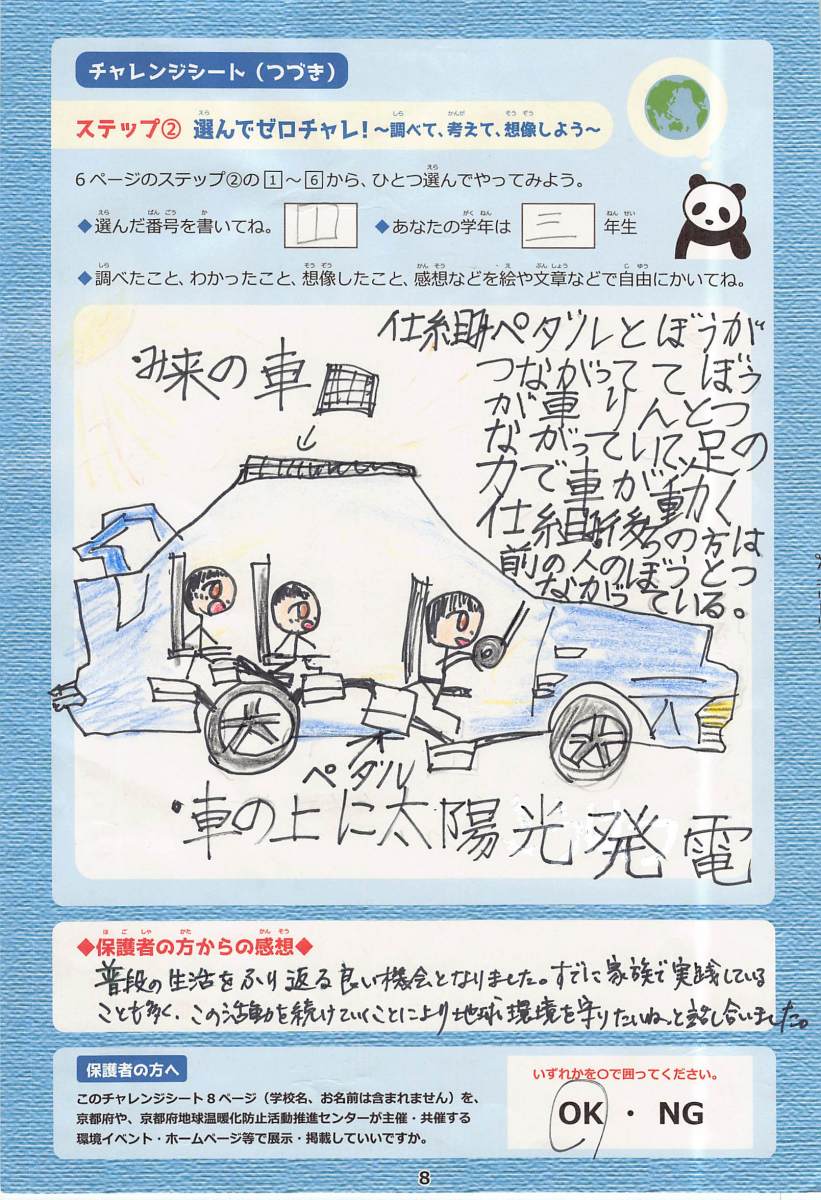 チャレンジシート(つづき)
ステップ② 選んでゼロチャレ!~調べて、考えて、想像しよう~
6ページのステップ②の1~6から、ひとつ選んでやってみよう。
◆選んだ番号を書いてね。
◆あなたの学年は 三 年生
◆調べたこと、わかったこと、想像したこと、感想などを絵や文章などで自由にかいてね。
み来の車
仕組みペダルとぼうが
つながってて ぼう
が車りんとつ
ながっていて、足の
力で車が動く
仕組み後ろの方は
前の人のぼうとつ
ながっている。
ペダル
・車の上に太陽光発電
◆保護者の方からの感想◆
普段の生活をふり返る良い機会となりました。すでに家族で実践している
ことも多く、この活動を続けていくことにより地球環境を守りたいねと話し合いました。
保護者の方へ
このチャレンジシート8ページ(学校名、お名前は含まれません)を、
京都府や、京都府地球温暖化防止活動推進センターが主催・共催する
環境イベント・ホームページ等で展示・掲載していいですか。
いずれかを○で囲ってください。
OK・NG
8